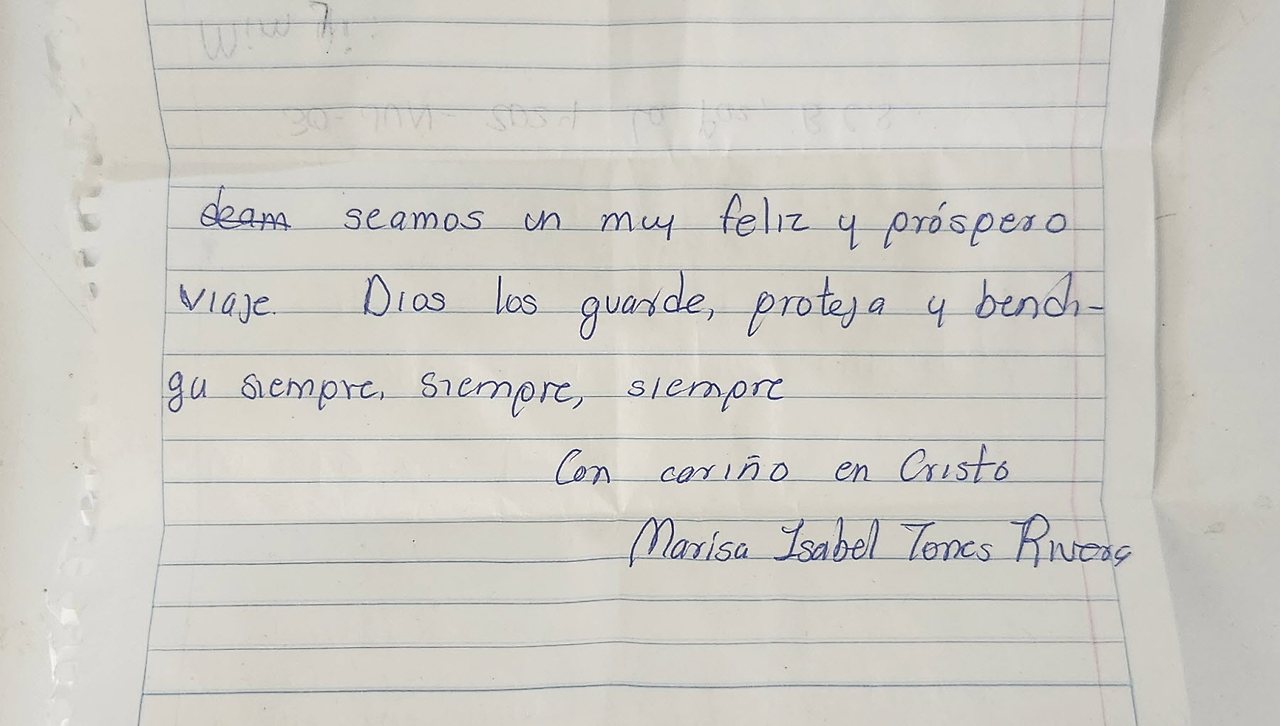 seamos un muy feliz y próspero
viaje. Dios los guarde, proteja y bendi-
ga siempre, siempre, siempre
Con cariño en Cristo
Marisa Isabel Torres Rivera